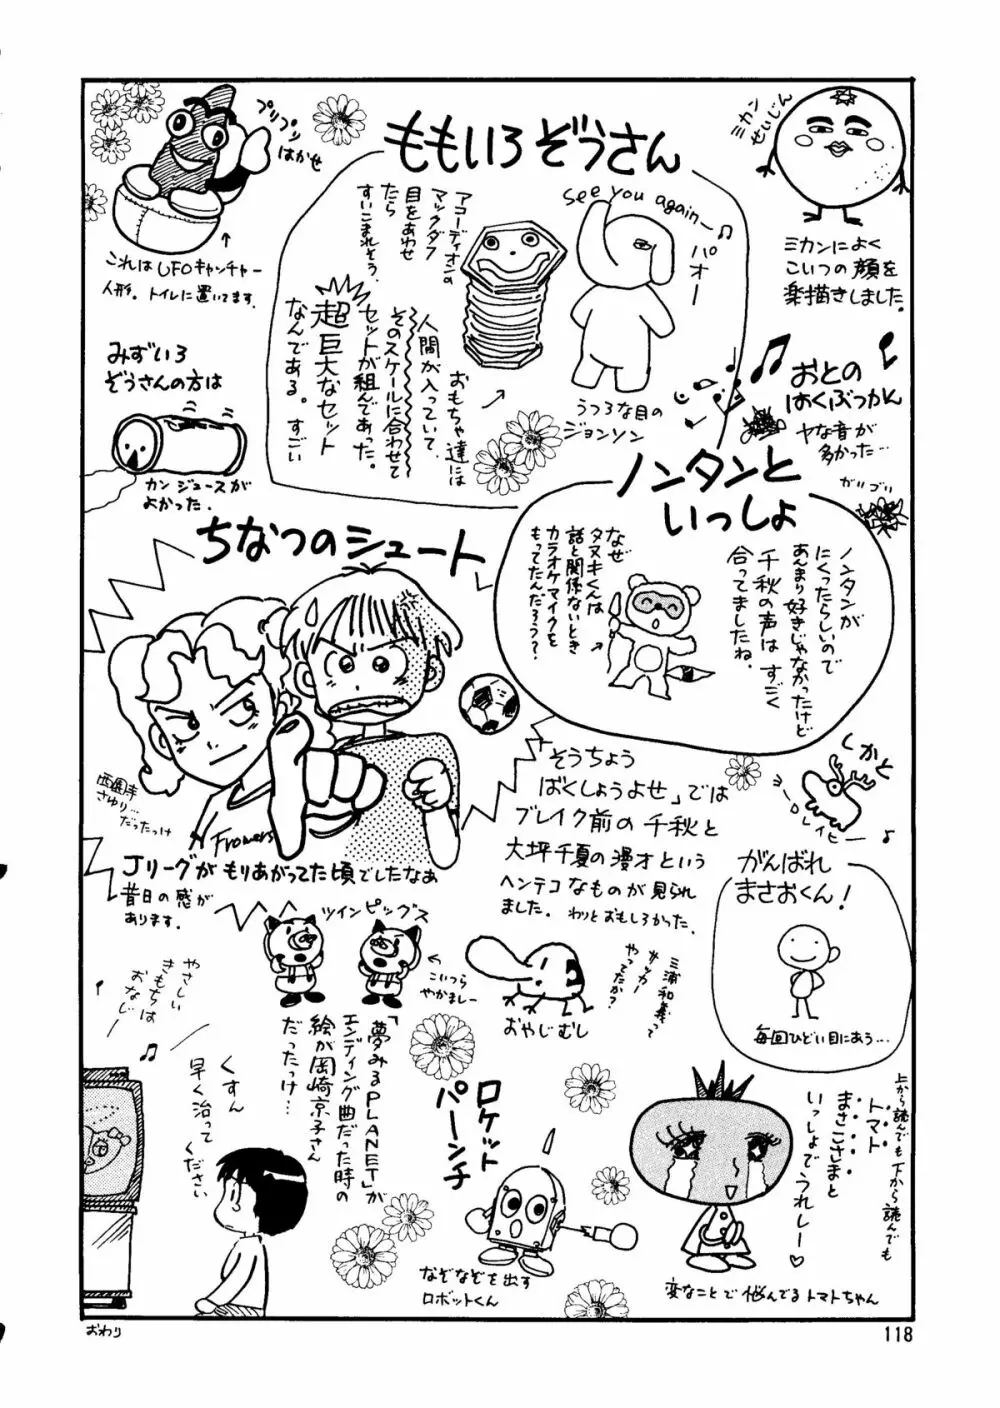 ももいろぞうさん
プリプリ
はかせ
これはUFOキャンチャー
人形。トイレに置いてます。
see you again—♪
パオー
アコーディオンの
マックダフ
目をあわせ
たら
すいこまれそう。
おもちゃ達には
人間が入っていて
そのスケールに合わせて
セットが組んであった。
超巨大なセット
なんである。すごい
うつろな目の
ジョンソン
ミカン
せいじん
ミカンによく
こいつの顔を
楽描きしました。
みずいろ
ぞうさんの方は
カンジュースが
よかった.
おとの
はくぶつかん
ヤな音が
多かった…
ガリゴリ
ノンタンと
いっしょ
ノンタンが
にくったらしいので
あんまり好きじゃなかったけど
千秋の声はすごく
合ってましたね。
なぜ
タヌキくんは
話と関係ないとき
カラオケマイクを
もってたんだろう?
ちなつのシュート
西園寺
さゆり…
だったっけ
Flowers
Jリーグがもりあがってた頃でしたなあ
昔日の感が
あります.
「そうちょう
ばくしょうよせ」では
ブレイク前の千秋と
大坪千夏の漫才という
ヘンテコなものが見られ
ました. わりとおもしろかった.
しかと
レイヒー♪
がんばれ
まさおくん!
毎回ひどい目にあう…
ツインピッグス
こいつら
やかましー
おやじむし
三浦和義って
サッカー
やってたか?
やさしい
きもちは
おなじー
♪
くすん
早く治って
ください
「夢みるPLANET」が
エンディング曲だった時の
絵が岡崎京子さん
だったっけ…
ロケット
パーンチ
なぞなぞを出す
ロボットくん
上から読んでも下から読んでも
トマト
まさこさまと
いっしょでうれしー♡
変なことで悩んでるトマトちゃん
おわり
118